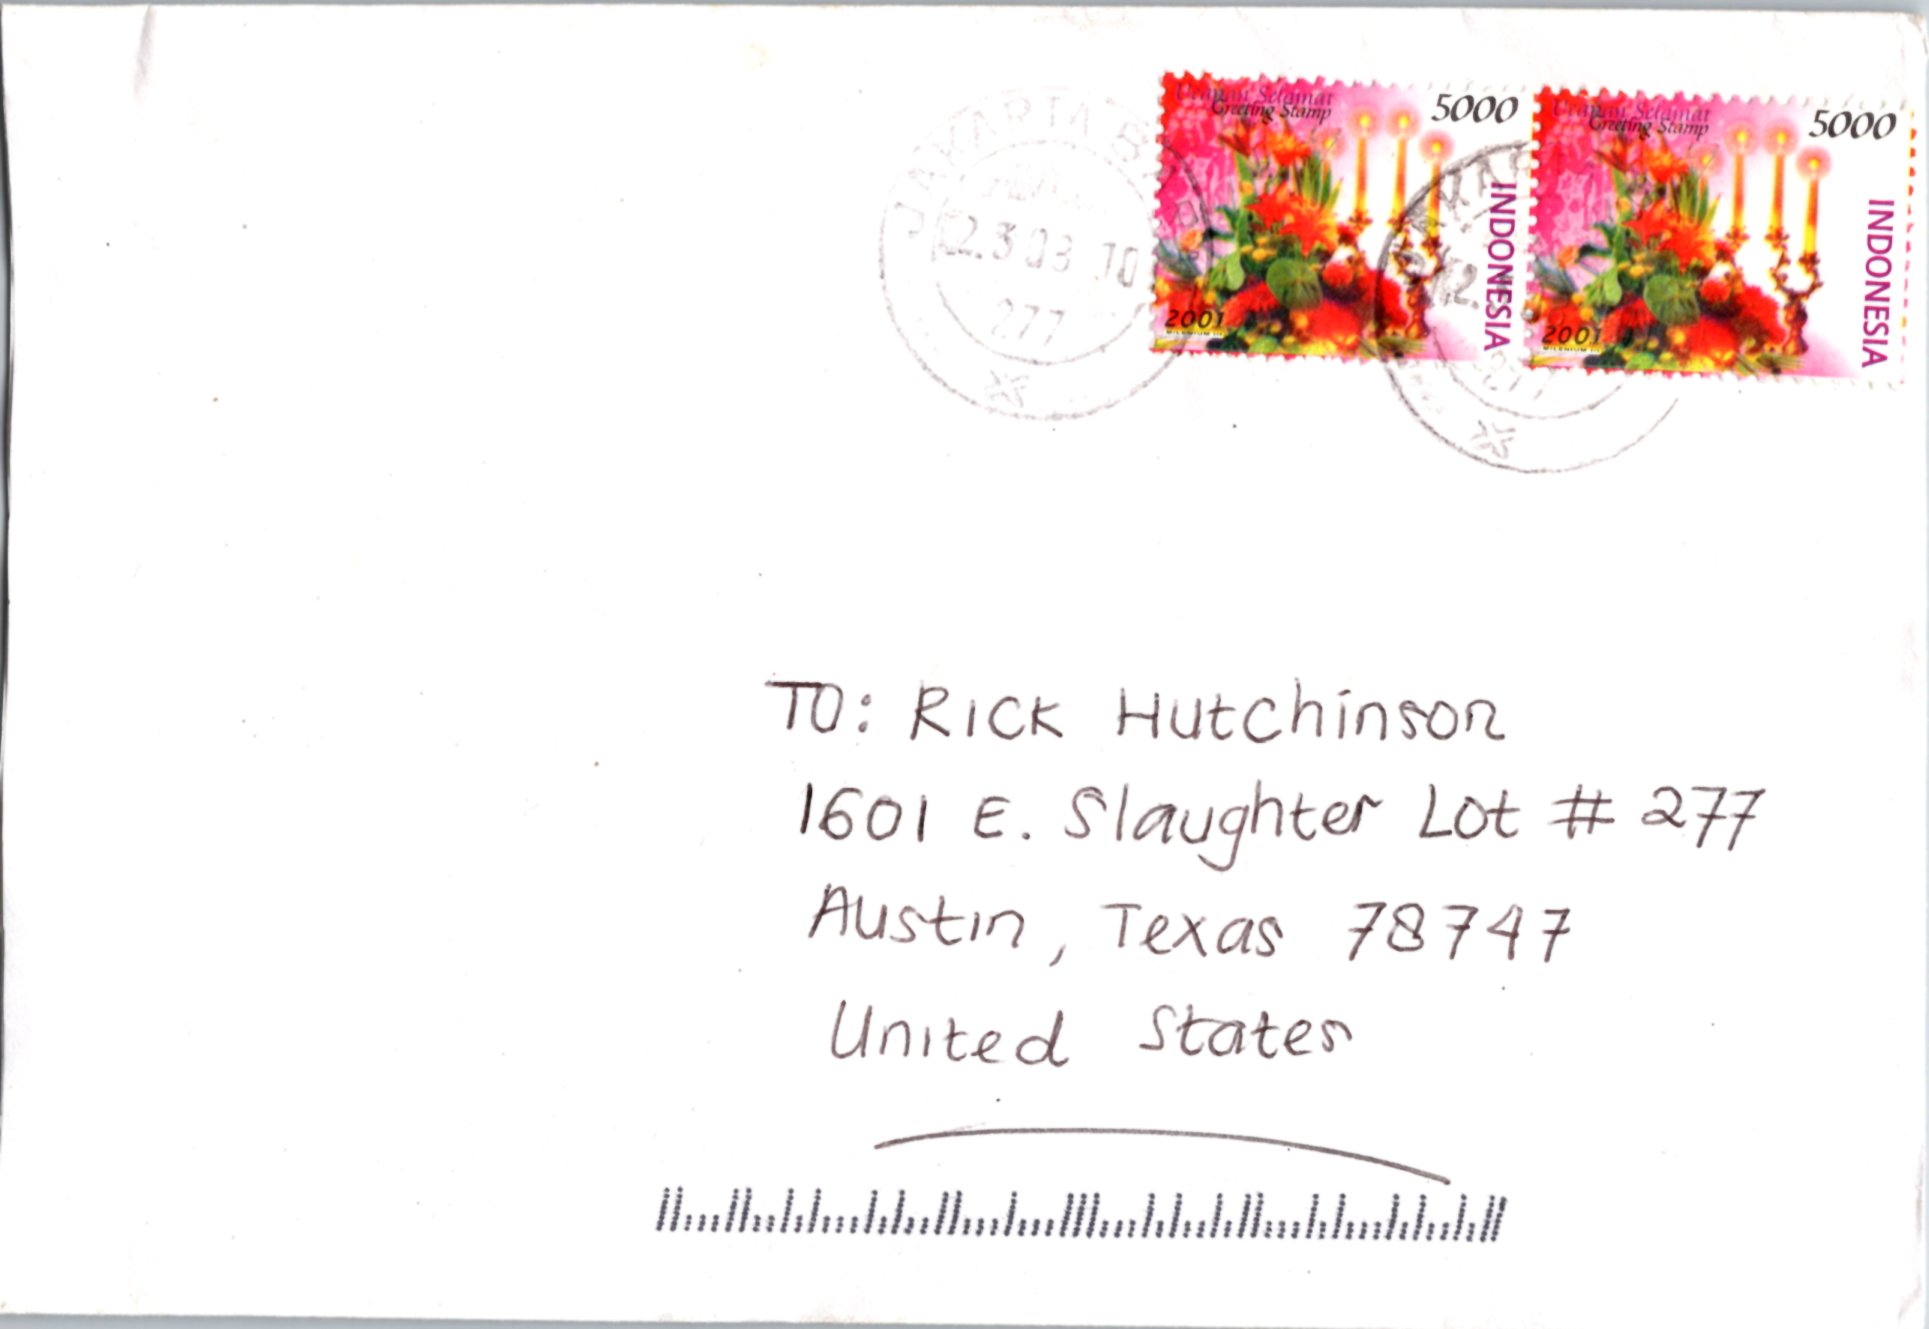 Ucapan Selamat
Greeting Stamp
5000
INDONESIA
2001
Ucapan Selamat
Greeting Stamp
5000
INDONESIA
2001
JAKARTA
12.3.03 10
277
TO: Rick Hutchinson
1601 E. Slaughter Lot # 277
Austin, Texas 78747
United States